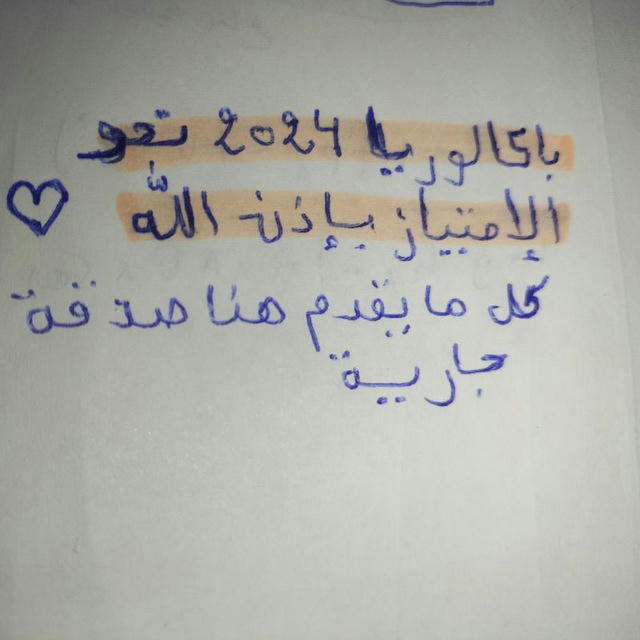 باكالوريا 2024 نحو
الإمتياز بإذن الله
كل ما يقدم هنا صدقة
جارية